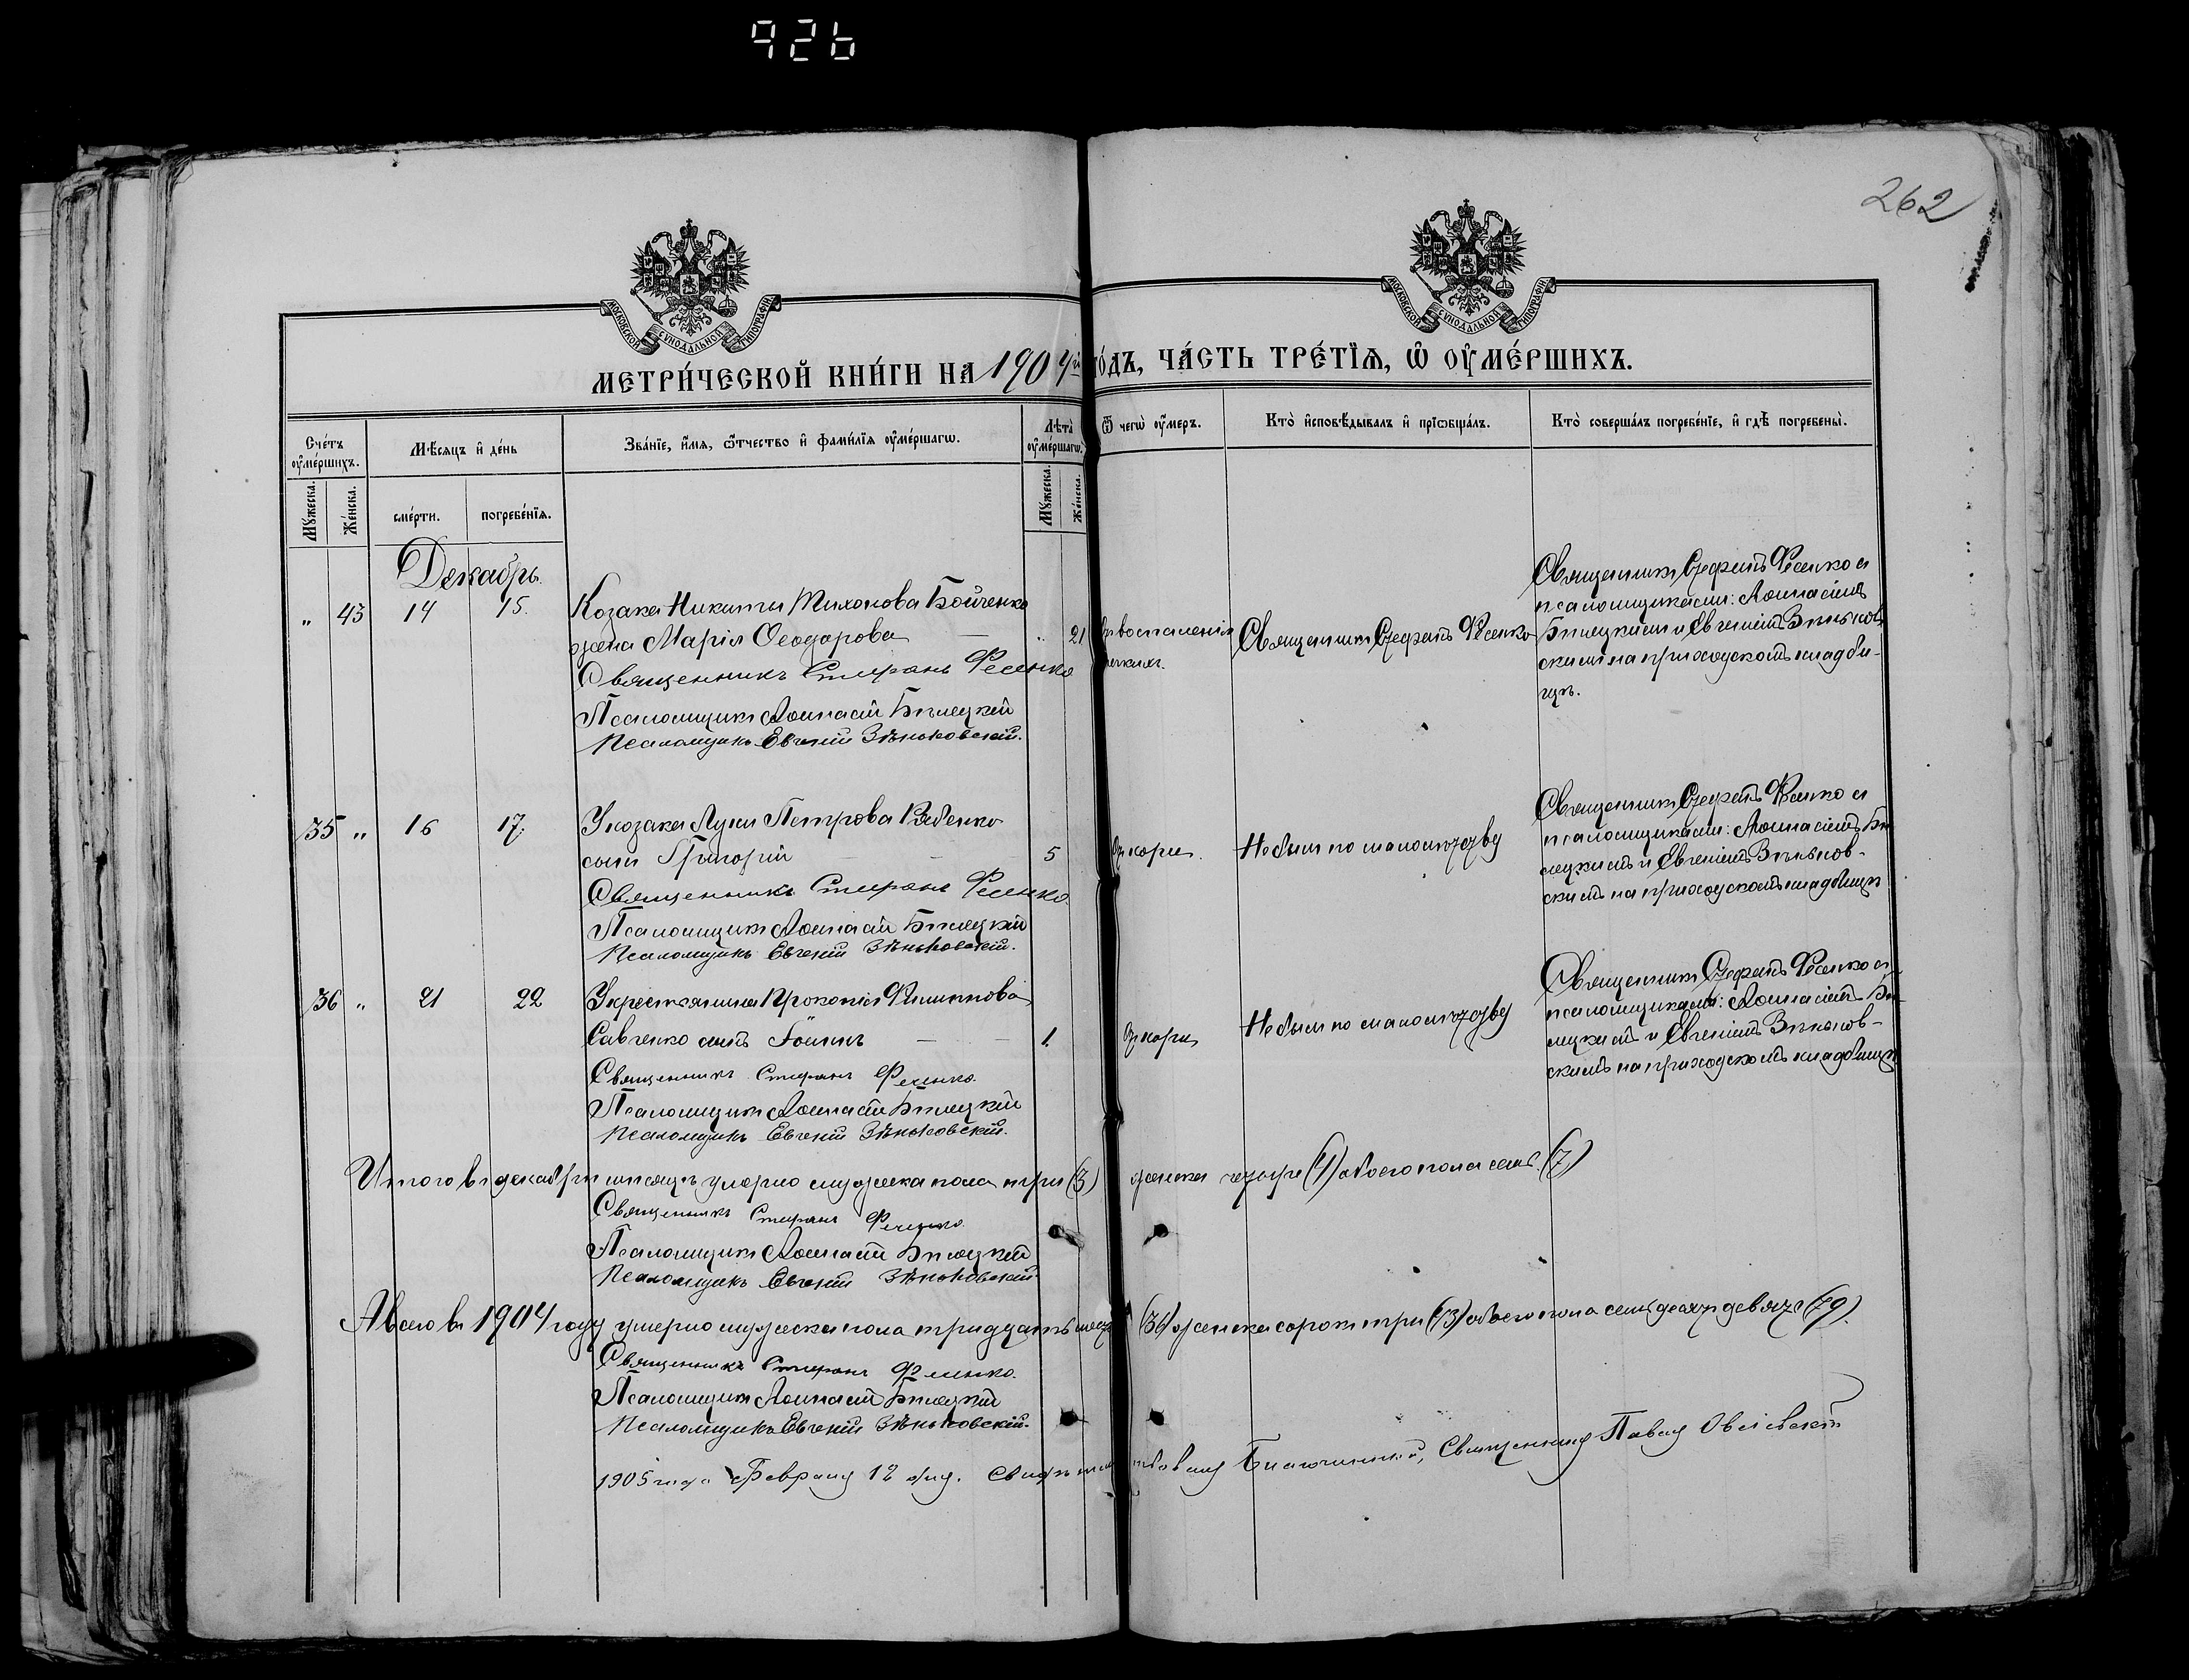 926
262
МОСКОВСКОЙ СѴНОДАЛЬНОЙ ТИПОГРАФІИ
МОСКОВСКОЙ СѴНОДАЛЬНОЙ ТИПОГРАФІИ
МЕТРИ́ЧЕСКОЙ КНИ́ГИ НА 1904й ГО́ДЪ, ЧА́СТЬ ТРЕ́ТЇѦ, Ѡ҆ ОУ҆МЕ́РШИХЪ.
Сче́тъ оу҆ме́ршихъ.
Мѣ́сѧцъ и҆ де́нь
Зва́нїе, и҆́мѧ, ѻ҆́тчество и҆ фами́лїѧ оу҆ме́ршагѡ.
Лѣта̀ оу҆ме́ршагѡ.
Ѿ чегѡ̀ оу҆́меръ.
Кто̀ и҆сповѣ́дывалъ и҆ прїѡбща́лъ.
Кто̀ соверша́лъ погребе́нїе, и҆ гдѣ̀ погребены̀.
Мꙋ́жеска.
Же́нска.
сме́рти.
погребе́нїѧ.
Мꙋ́жеска.
Же́нска.
Декабрь.
„ 43 14 15. Козака Никиты Тихонова Бойченко
жена Марія Ѳеодорова — „ 21
Священникъ Стефанъ Фесенко
Псаломщикъ Аѳанасій Бѣлецкій
Псаломщикъ Евгеній Зѣньковскій.
Отъ воспаленія
легкихъ.
Священникъ Стефанъ Фесенко
Священникъ Стефанъ Фесенко съ
псаломщиками: Аѳанасіемъ
Бѣлецкимъ и Евгеніемъ Зѣньков-
скимъ на приходскомъ кладби-
щѣ.
35 „ 16 17. У козака Луки Петрова Рябенко
сынъ Григорій — — 5
Священникъ Стефанъ Фесенко.
Псаломщикъ Аѳанасій Бѣлецкій
Псаломщикъ Евгеній Зѣньковскій.
Отъ кори.
Не былъ по малолѣтству
Священникъ Стефанъ Фесенко съ
псаломщиками: Аѳанасіемъ Бѣ-
лецкимъ и Евгеніемъ Зѣньков-
скимъ на приходскомъ кладбищѣ
36 „ 21 22 У крестьянина Прокопія Филиппова
Савченко сынъ Іоаннъ — — 1.
Священникъ Стефанъ Фесенко.
Псаломщикъ Аѳанасій Бѣлецкій
Псаломщикъ Евгеній Зѣньковскій.
Отъ кори
Не былъ по малолѣтству
Священникъ Стефанъ Фесенко съ
псаломщиками: Аѳанасіемъ Бѣ-
лецкимъ и Евгеніемъ Зѣньков-
скимъ на приходскомъ кладбищѣ
Итого въ декабрѣ мѣсяцѣ умерло мужеска пола три (3) женска четыре (4) обоего пола семь (7)
Священникъ Стефанъ Фесенко.
Псаломщикъ Аѳанасій Бѣлецкій
Псаломщикъ Евгеній Зѣньковскій
А всего въ 1904 году умерло мужеска пола тридцать шесть (36) женска сорокъ три (43) обоего пола семьдесятъ девять (79).
Священникъ Стефанъ Фесенко.
Псаломщикъ Аѳанасій Бѣлецкій
Псаломщикъ Евгеній Зѣньковскій.
1905 года Февраля 12 дня. Свидѣтельствовалъ Благочинный, Священникъ Павелъ